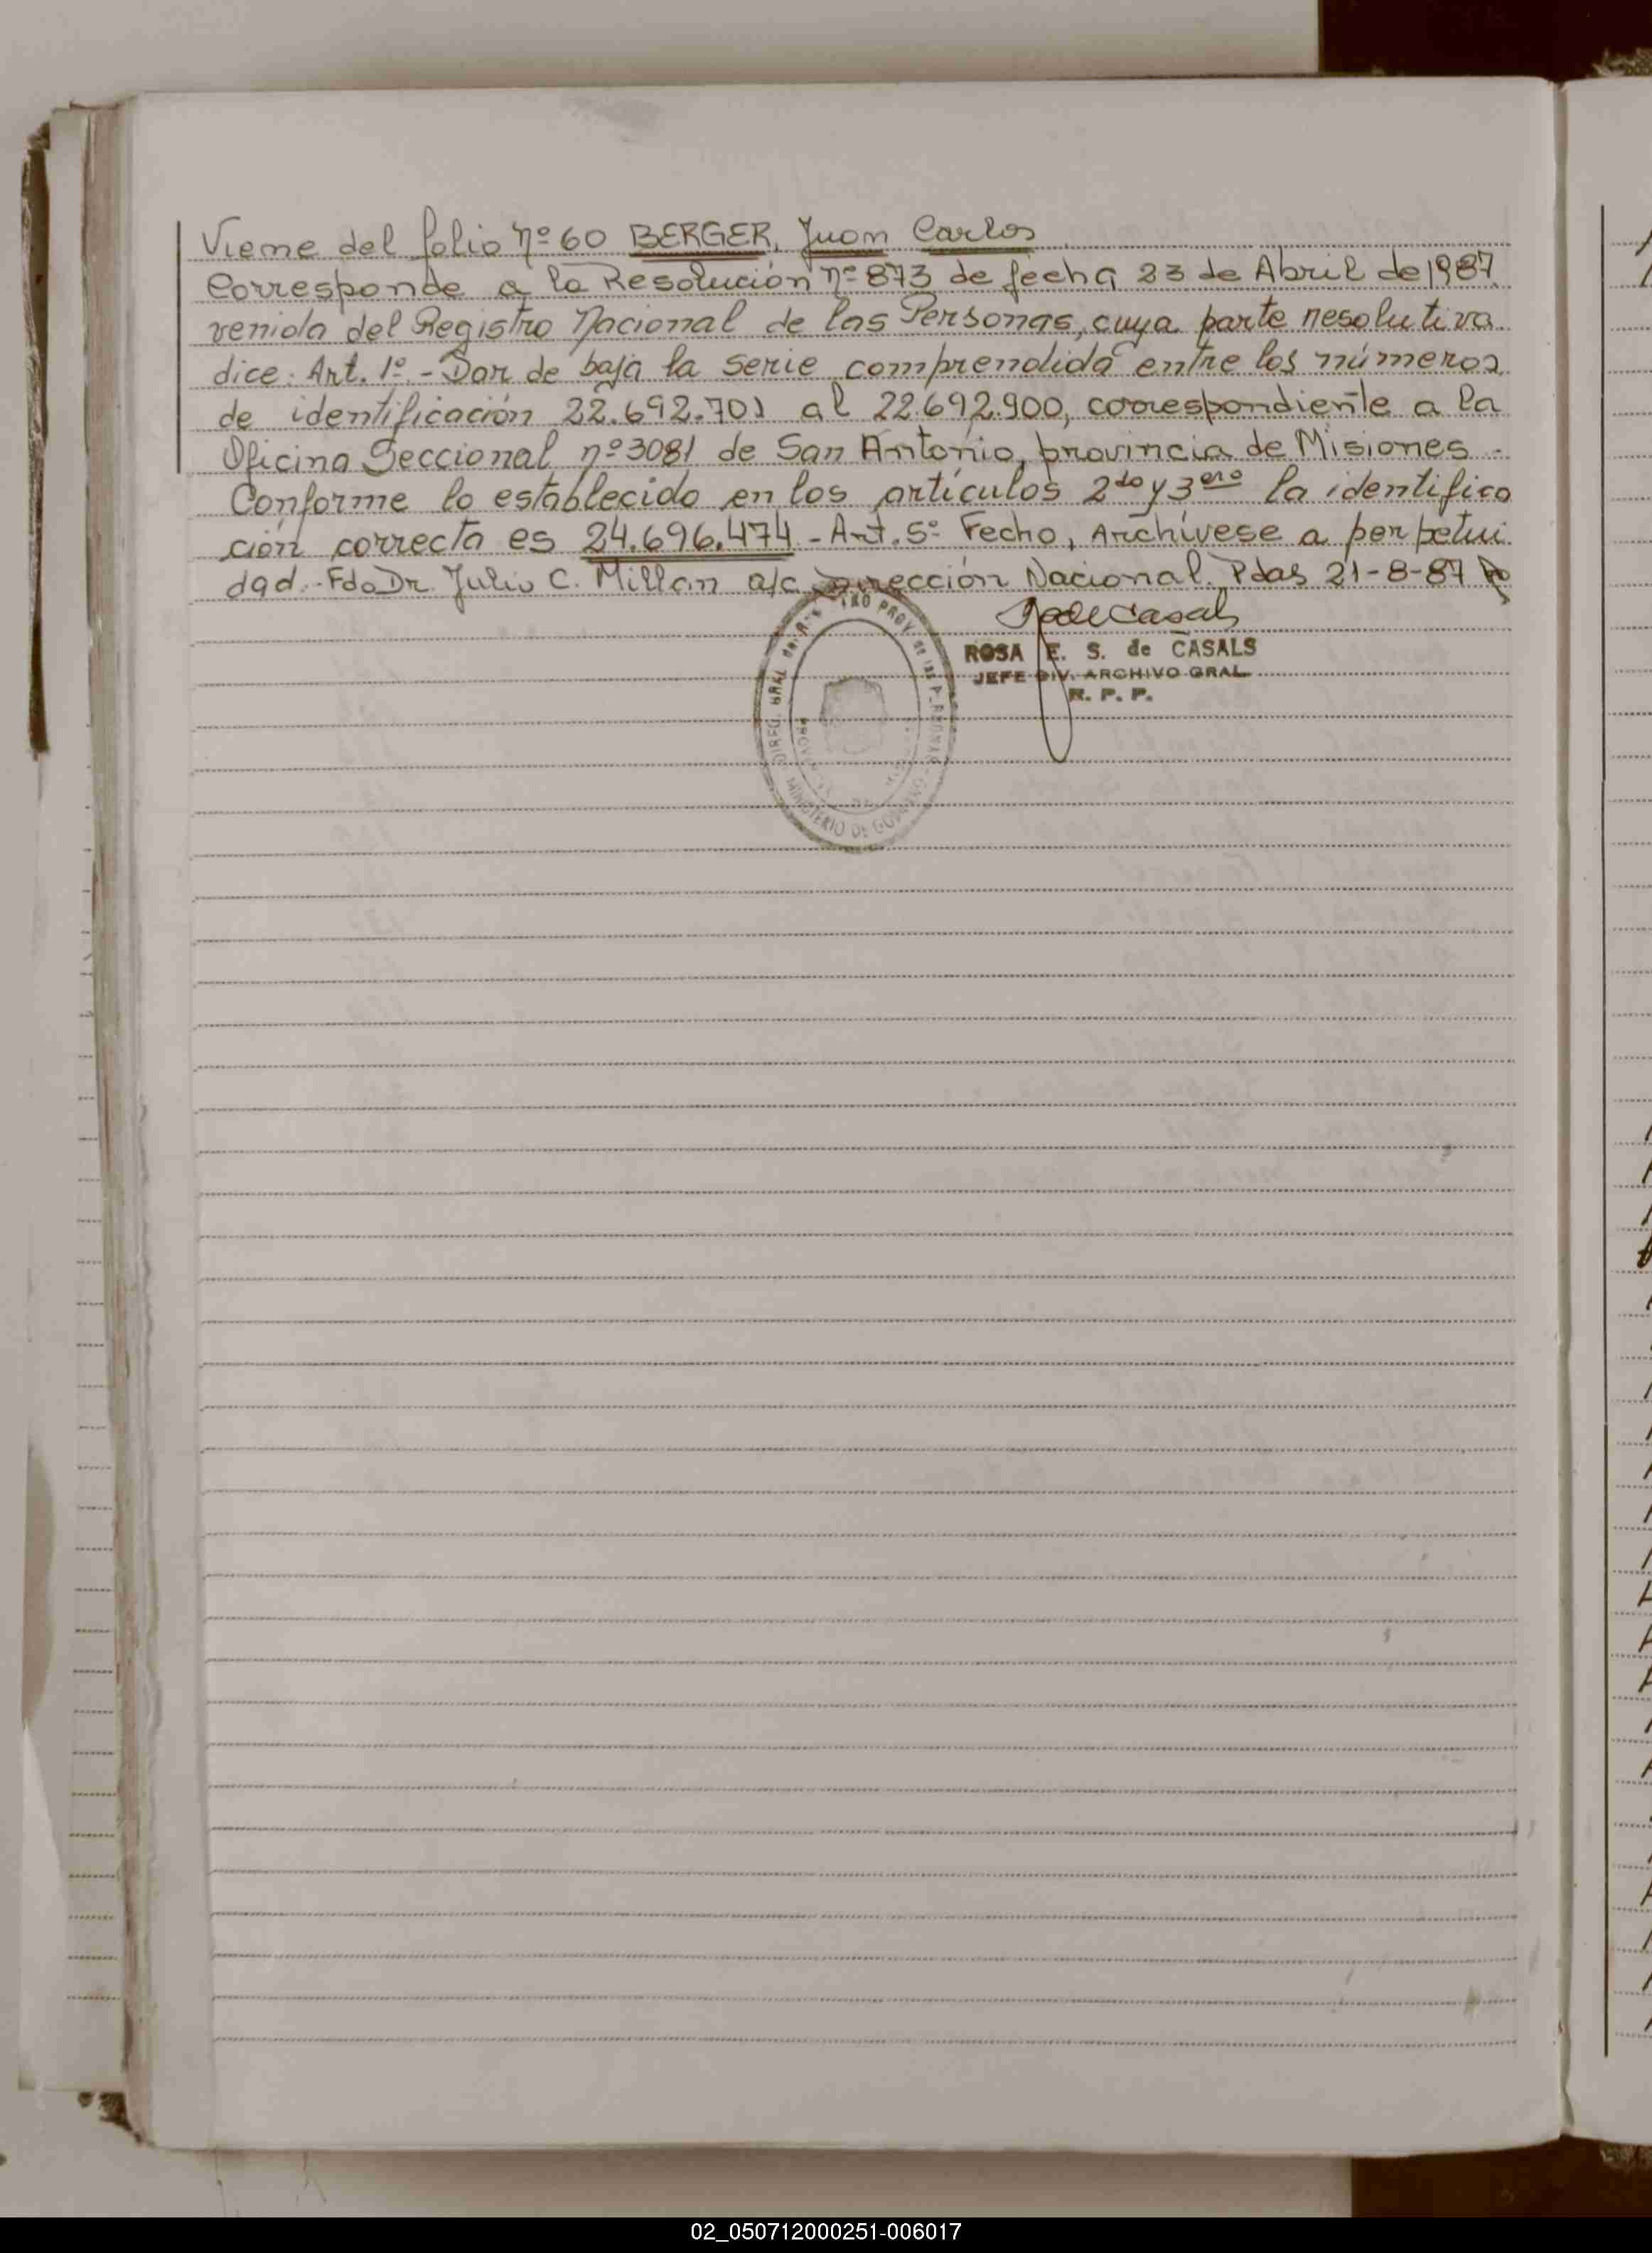 Viene del folio nº 60 BERGER, Juan Carlos
Corresponde a la Resolución nº 873 de fecha 23 de Abril de 1987
venida del Registro Nacional de las Personas, cuya parte resolutiva
dice: Art. 1º.- Dar de baja la serie comprendida entre los números
de identificación 22.692.701 al 22.692.900, correspondiente a la
Oficina Seccional nº 3081 de San Antonio, provincia de Misiones.-
Conforme lo establecido en los artículos 2do y 3ero la identifica
ción correcta es 24.696.474.- Art. 5º Fecho, Archívese a perpetui
dad.- Fdo Dr. Julio C. Millan a/c Dirección Nacional. Pdas 21-8-87
ROSA E. S. de CASALS
JEFE DIV. ARCHIVO GRAL
R. P. P.
MINISTERIO DE GOBIERNO
02_050712000251-006017